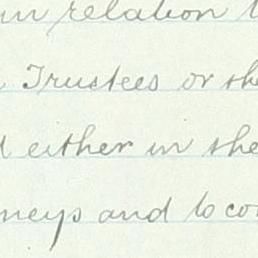 in relation t
Trustees or the
d either in the
neys and to con